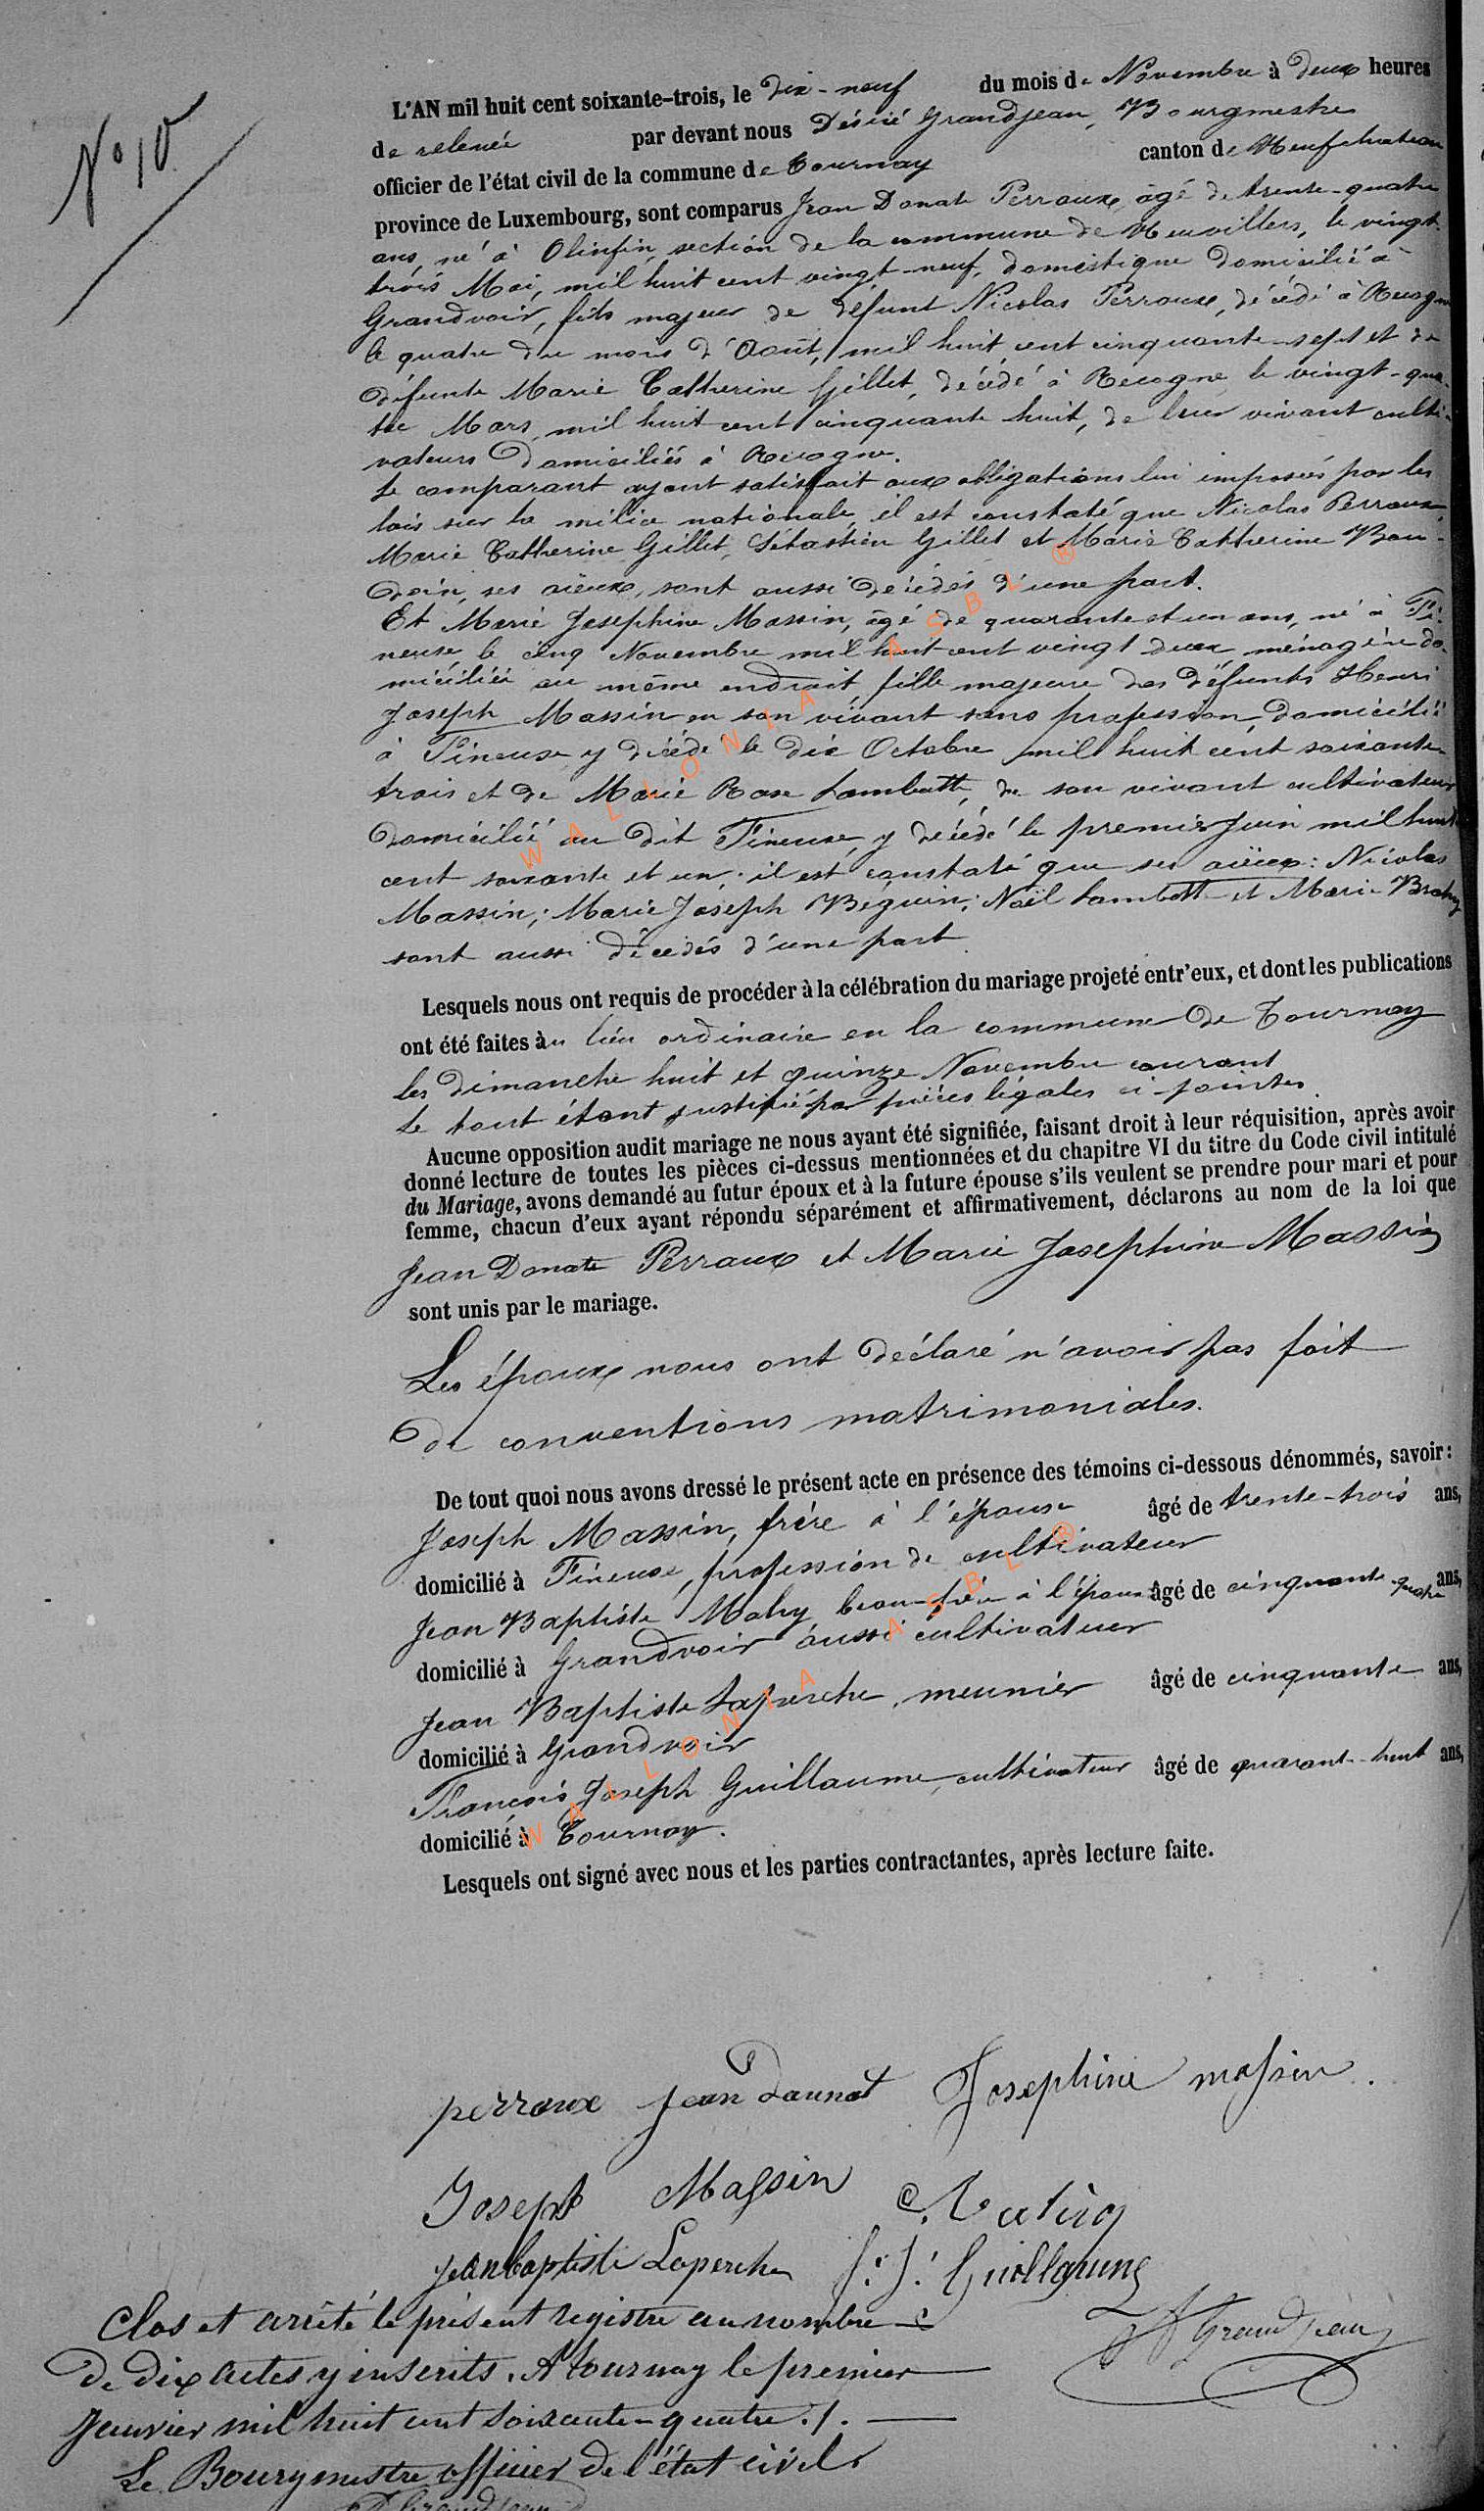 N° 10
L'AN mil huit cent soixante-trois, le dix-neuf du mois de Novembre à deux heures
de relevée par devant nous Désiré Grandjean, Bourgmestre
officier de l'état civil de la commune de Tournay canton de Neufchateau
province de Luxembourg, sont comparus Jean Donate Perraux, âgé de trente-quatre
ans, né à Olinfin, section de la commune de Neuvillers, le vingt-
trois Mai, mil huit cent vingt-neuf, domestique domicilié à
Grandvoir, fils majeur de défunt Nicolas Perraux, décédé à Recogne
le quatre du mois d'Août, mil huit cent cinquante-sept et de
défunte Marie Catherine Gillet, décédé à Récogne le vingt-qua-
tre Mars, mil huit cent cinquante huit, de leur vivant culti-
vateurs domiciliés à Recogne.
Le comparant ayant satisfait aux obligations lui imposées par les
lois sur la milice nationale, il est constaté que Nicolas Perraux,
Marie Catherine Gillet, Sébastien Gillet et Marie Catherine Bau-
doin, ses aïeux, sont aussi décédés d'une part.
Et Marie Josephine Massin, âgé de quarante et un ans, né à Fi-
neuse le cinq Novembre mil huit cent vingt deux ménagère do-
miciliée au même endroit, fille majeure des défunts Henri
Joseph Massin en son vivant sans profession, domicilié
à Fineuse y décédé le dix Octobre mil huit cent soixante-
trois et de Marie Rose Lambotte, de son vivant cultivateur
domicilié au dit Fineuse, y décédé le premier Juin mil huit
cent soixante et un; il est constaté que ses aïeux: Nicolas
Massin; Marie Joseph Béguin; Noël Lambotte et Marie
sont aussi décédés d'une part
Lesquels nous ont requis de procéder à la célébration du mariage projeté entr'eux, et dont les publications
ont été faites au lieu ordinaire en la commune de Tournay
les dimanche huit et quinze Novembre courant
Le tout étant justifié par pièces légales ci-jointes.
Aucune opposition audit mariage ne nous ayant été signifiée, faisant droit à leur réquisition, après avoir
donné lecture de toutes les pièces ci-dessus mentionnées et du chapitre VI du titre du Code civil intitulé
du Mariage, avons demandé au futur époux et à la future épouse s'ils veulent se prendre pour mari et pour
femme, chacun d'eux ayant répondu séparément et affirmativement, déclarons au nom de la loi que
Jean Donate Perraux et Marie Josephine Massin
sont unis par le mariage.
Les époux nous ont déclaré n'avoir pas fait
de conventions matrimoniales.
De tout quoi nous avons dressé le présent acte en présence des témoins ci-dessous dénommés, savoir:
Joseph Massin, frère à l'épouse âgé de trente-trois ans,
domicilié à Fineuse, profession de cultivateur
Jean Baptiste Mahy, beau-frère à l'épouse âgé de cinquante-quatre ans,
domicilié à Grandvoir aussi cultivateur
Jean Baptiste Laperche, meunier âgé de cinquante ans,
domicilié à Grandvoir
François Joseph Guillaume, cultivateur âgé de quarant-huit ans,
domicilié à Tournay.
Lesquels ont signé avec nous et les parties contractantes, après lecture faite.
perraux jean daunat Josephine massin.
Joseph Massin
jeanbaptiste Laperche f.j. Guillaume
Clos et arrêté le présent registre au nombre
De dix actes y inscrits. A tournay le premier
Janvier mil huit cent soixante-quatre./.
Le Bourgmestre officier de l'état civil
Grandjean
WALLONIA ASBL ®
WALLONIA ASBL ®